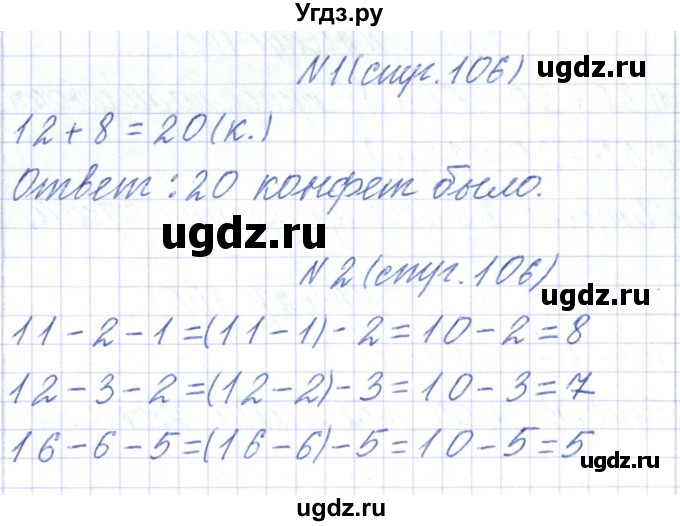 Угдз.ру
N1(стр.106)
ugdz.ru
12+8=20(к.)
Ответ: 20 конфет было.
ugdz.ru
N2(стр.106)
ugdz.ru
11-2-1=(11-1)-2=10-2=8
12-3-2=(12-2)-3=10-3=7
16-6-5=(16-6)-5=10-5=5
ugdz.ru
ugdz.ru